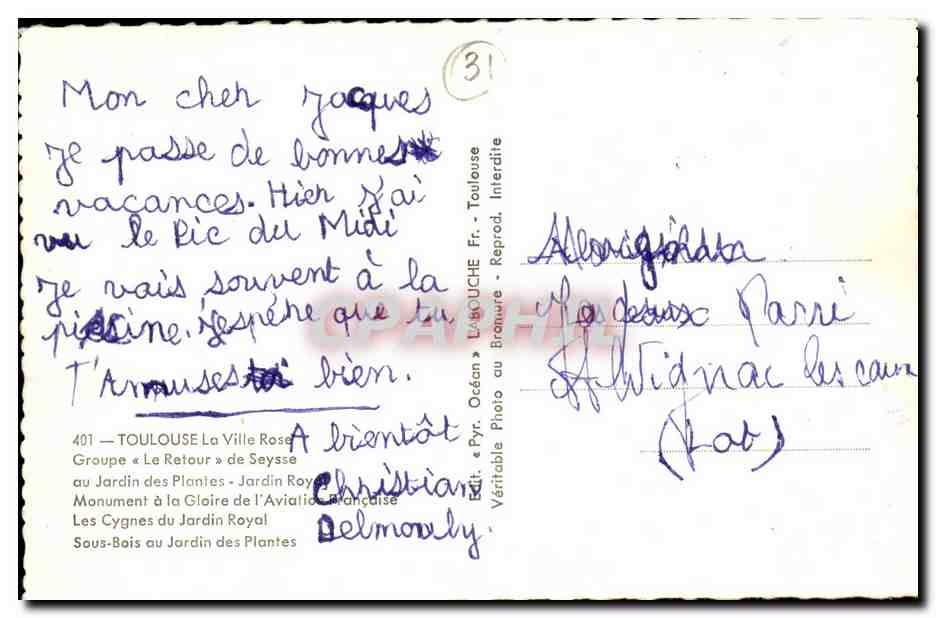 31
Mon cher Jacques
Je passe de bonnes
vacances. Hier j'ai
vu le Pic du Midi
Je vais souvent à la
piscine. J'espère que tu
T'Amuses bien.
A bientôt
Christian
Delmouly.
401 — TOULOUSE La Ville Rose
Groupe « Le Retour » de Seysse
au Jardin des Plantes - Jardin Royal
Monument à la Gloire de l'Aviation Française
Les Cygnes du Jardin Royal
Sous-Bois au Jardin des Plantes
Edit. « Pyr. Océan » LABOUCHE Fr. - Toulouse
Véritable Photo au Bromure - Reprod. Interdite
Parri
Alvignac les eaux
(Lot)